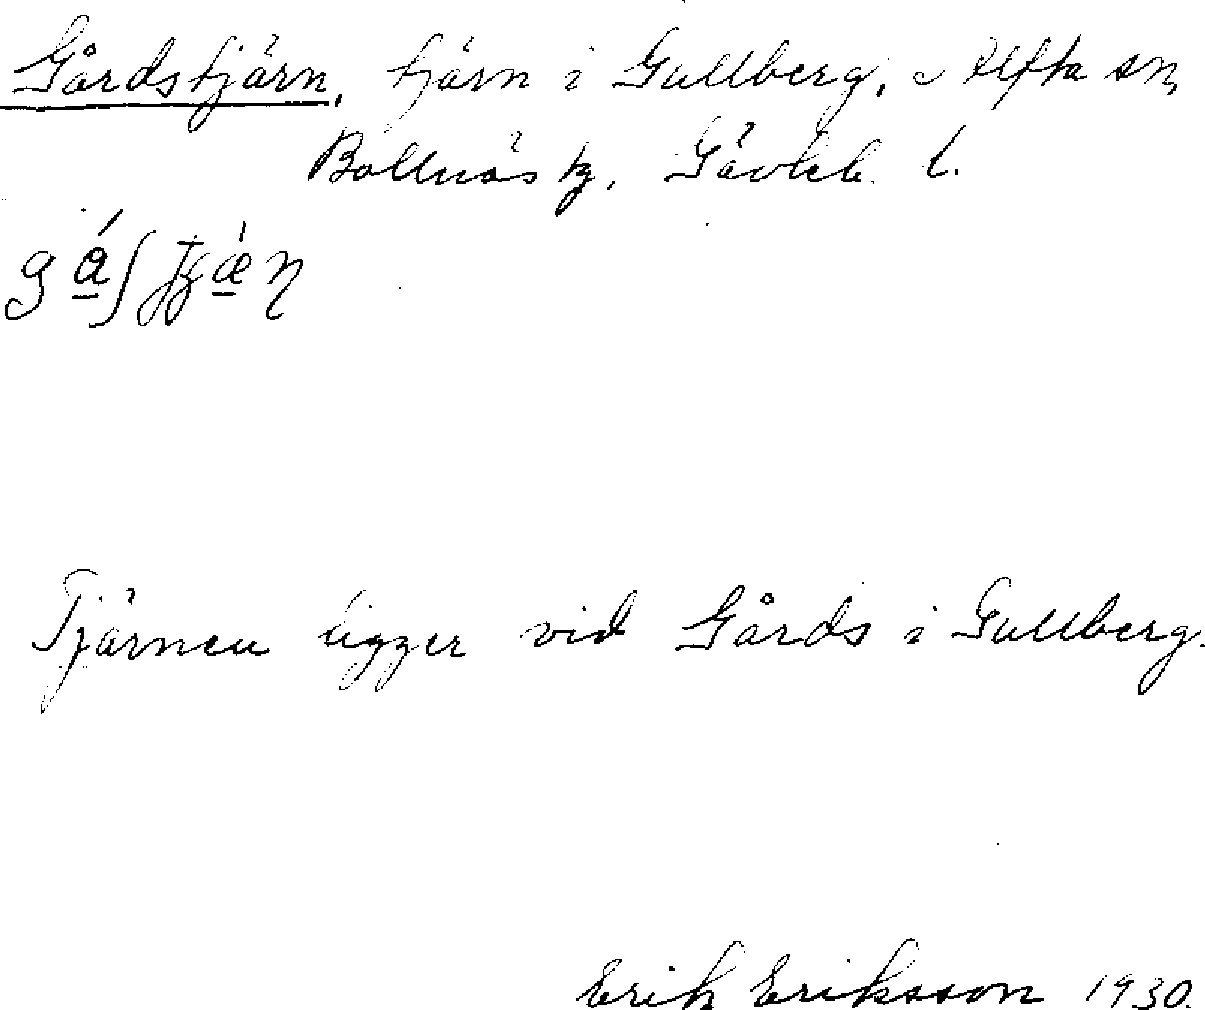 Gårdstjärn, tjärn i Gullberg, i Alfta sn,
Bollnäs tg, Gävleb. l.
Tjärnen ligger vid Gårds i Gullberg.
Erik Eriksson 1930.